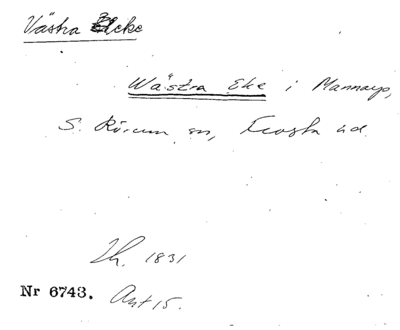 Västra Ecke
Wästra Eke i Mannarp,
S. Rörum sn, Frosta hd.
Lh. 1831
Nr 6743. Avt 15.